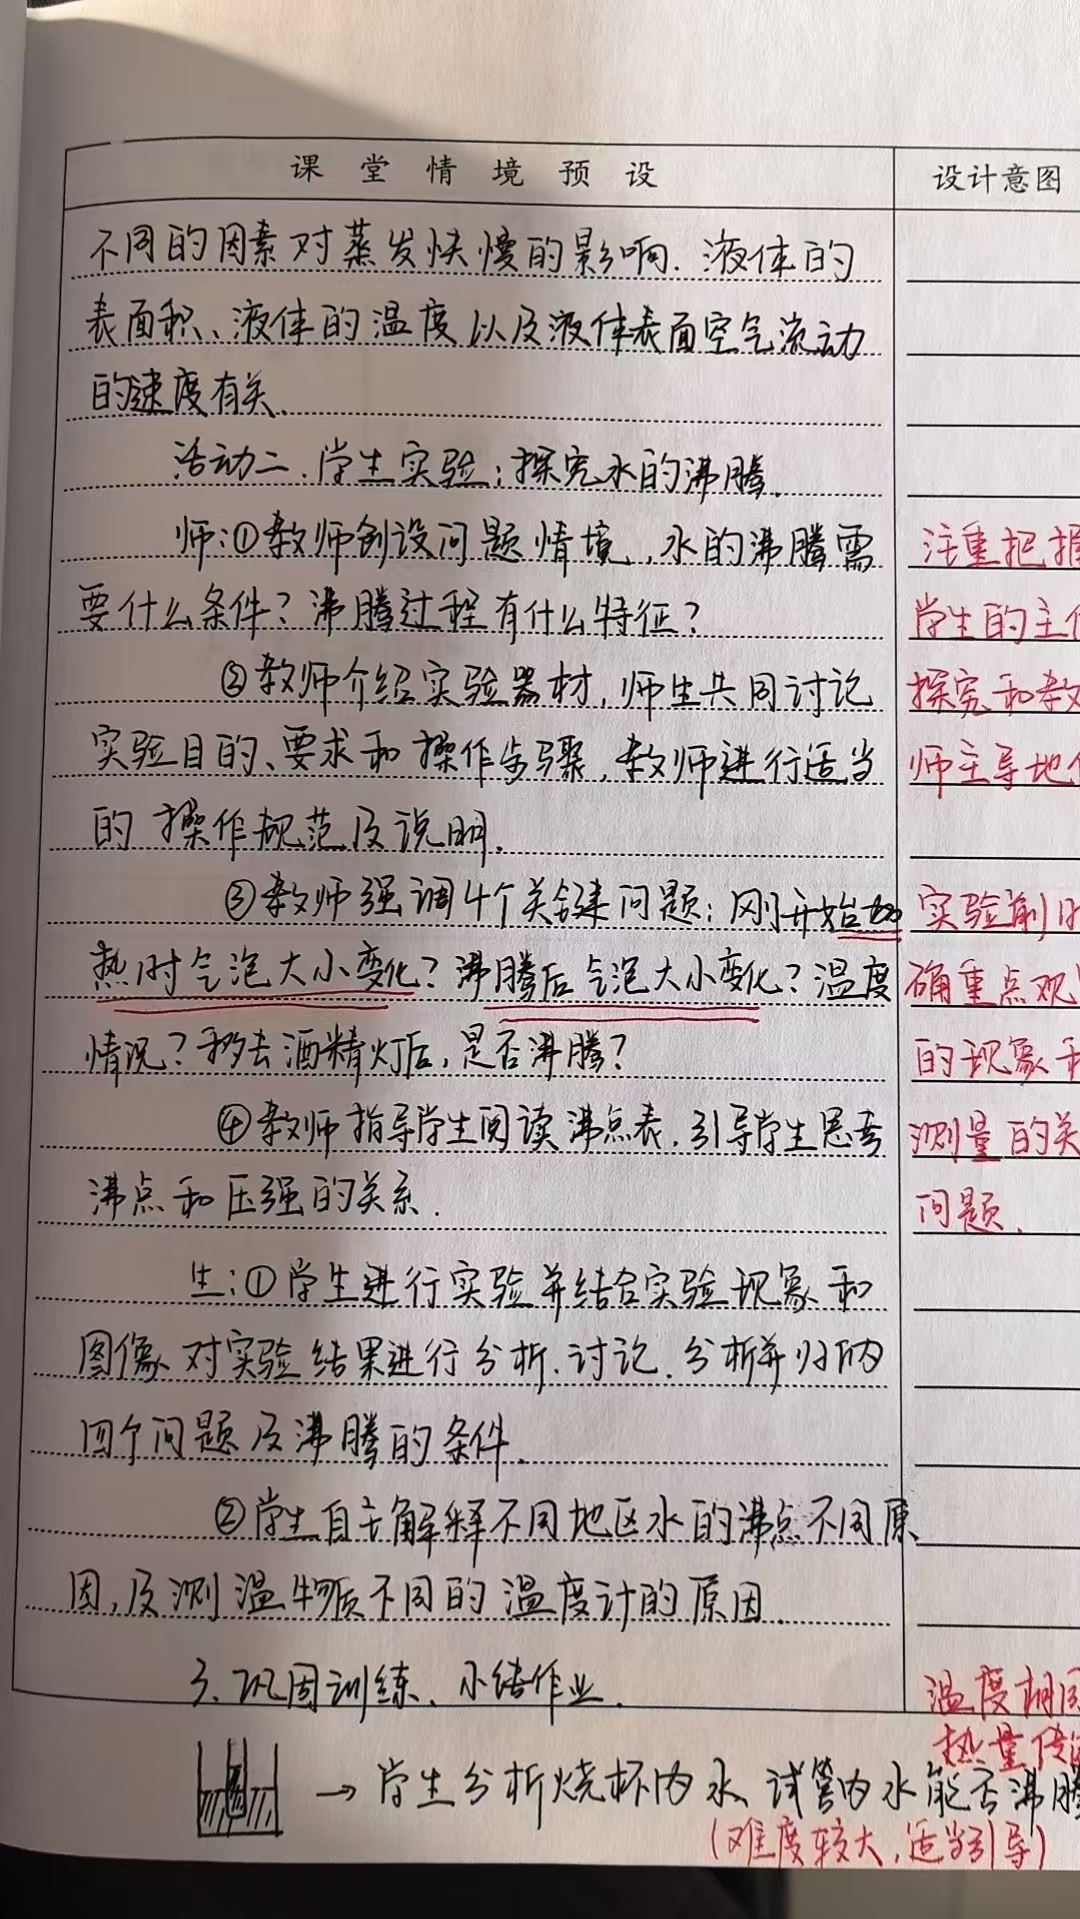 课堂情境预设
不同的因素对蒸发快慢的影响.液体的
表面积、液体的温度以及液体表面空气流动
的速度有关.
活动二.学生实验:探究水的沸腾.
师:①教师创设问题情境,水的沸腾需
要什么条件?沸腾过程有什么特征?
②教师介绍实验器材,师生共同讨论
实验目的、要求和操作步骤,教师进行适当
的操作规范及说明.
③教师强调4个关键问题:刚开始加
热时气泡大小变化?沸腾后气泡大小变化?温度
情况?移去酒精灯后,是否沸腾?
④教师指导学生阅读沸点表.引导学生思考
沸点和压强的关系.
生:①学生进行实验并结合实验现象和
图像对实验结果进行分析.讨论.分析并归纳
四个问题及沸腾的条件.
②学生自主解释不同地区水的沸点不同原
因,及测温物质不同的温度计的原因.
3.巩固训练、小结作业.
→学生分析烧杯内水、试管内水能否沸腾
(难度较大,适当引导)
设计意图
注重把握
学生的主体
探究和教
师主导地位
实验前明
确重点观
的现象和
测量的关
问题.
温度相同
热量传